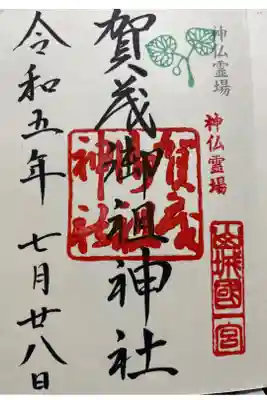 神仏霊場
神仏霊場
山城國一宮
賀茂御祖神社
賀茂御祖神社
令和五年 七月廿八日